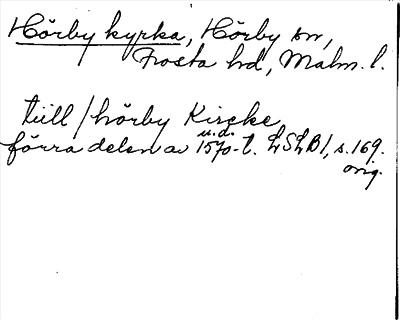 Hörby kyrka, Hörby sn,
Frosta hd, Malm. l.
till / hörby Kircke
u. d.
förra delen av 1570-t. LSLB 1, s. 169.
orig.